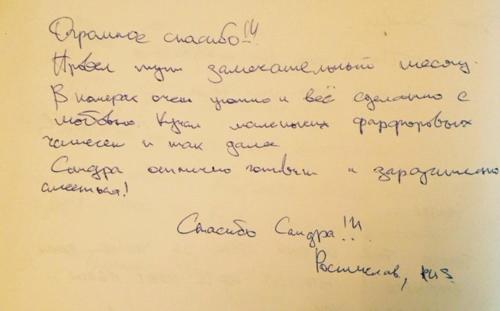 Огромное спасибо!!!
Провел тут замечательный месяц.
В номерах очень уютно и всё сделанно с
любовью. Кухая маленьких фарфоровых
чашечек и так далее
Сандра отлично готовит и заразительно
смеётся!
Спасибо Сандра!!!
Ростислав, RUS.